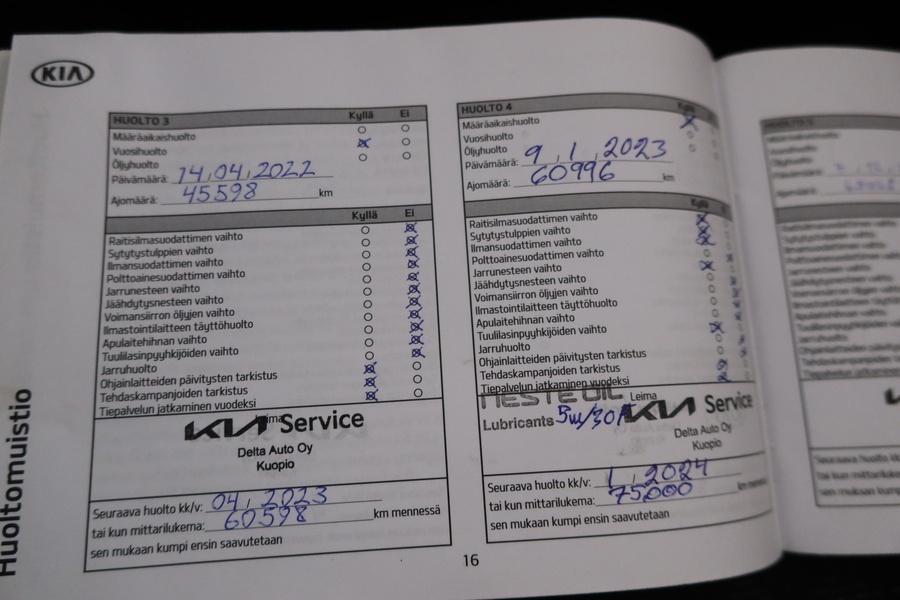 KIA
HUOLTO 3
Kyllä Ei
Määräaikaishuolto
Vuosihuolto
Öljyhuolto
Päivämäärä: 14.04.2022
Ajomäärä: 45598 km
Kyllä Ei
Raitisilmasuodattimen vaihto
Sytytystulppien vaihto
Ilmansuodattimen vaihto
Polttoainesuodattimen vaihto
Jarrunesteen vaihto
Jäähdytysnesteen vaihto
Voimansiirron öljyjen vaihto
Ilmastointilaitteen täyttöhuolto
Apulaitehihnan vaihto
Tuulilasinpyyhkijöiden vaihto
Jarruhuolto
Ohjainlaitteiden päivitysten tarkistus
Tehdaskampanjoiden tarkistus
Tiepalvelun jatkaminen vuodeksi
Leima
KIA Service
Delta Auto Oy
Kuopio
Seuraava huolto kk/v: 04, 2023
tai kun mittarilukema: 60598 km mennessä
sen mukaan kumpi ensin saavutetaan
HUOLTO 4
Kyllä
Määräaikaishuolto
Vuosihuolto
Öljyhuolto
Päivämäärä: 9, 1, 2023
Ajomäärä: 60996 km
Kyllä
Raitisilmasuodattimen vaihto
Sytytystulppien vaihto
Ilmansuodattimen vaihto
Polttoainesuodattimen vaihto
Jarrunesteen vaihto
Jäähdytysnesteen vaihto
Voimansiirron öljyjen vaihto
Ilmastointilaitteen täyttöhuolto
Apulaitehihnan vaihto
Tuulilasinpyyhkijöiden vaihto
Jarruhuolto
Ohjainlaitteiden päivitysten tarkistus
Tehdaskampanjoiden tarkistus
Tiepalvelun jatkaminen vuodeksi
NESTE OIL Leima
Lubricants 5w/30 KIA Service
Delta Auto Oy
Kuopio
Seuraava huolto kk/v: 1, 2024
tai kun mittarilukema: 75000 km
sen mukaan kumpi ensin saavutetaan
Huoltomuistio
16
Seuraava huolto
tai kun mittarilukema
sen mukaan